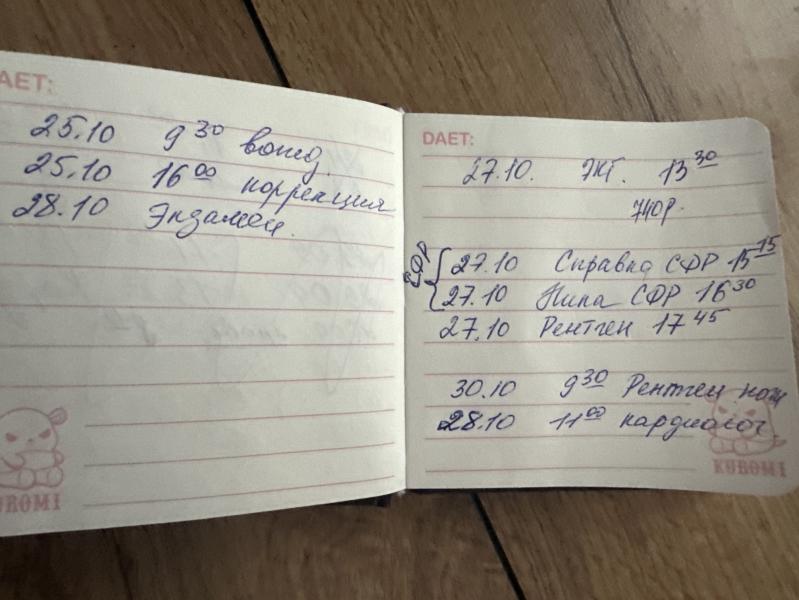 ДАЕТ:
25.10 9 30 вожд.
25.10 16 00 коррекция
28.10 Экзамен.
KUROMI
DАЕТ:
27.10. ЭКГ. 13 30
740р.
СФР
27.10 Справка СФР 15 15
27.10 Нина СФР 16 30
27.10 Рентген 17 45
30.10 9 30 Рентген ноги
28.10 11 00 кардиолог
KUROMI